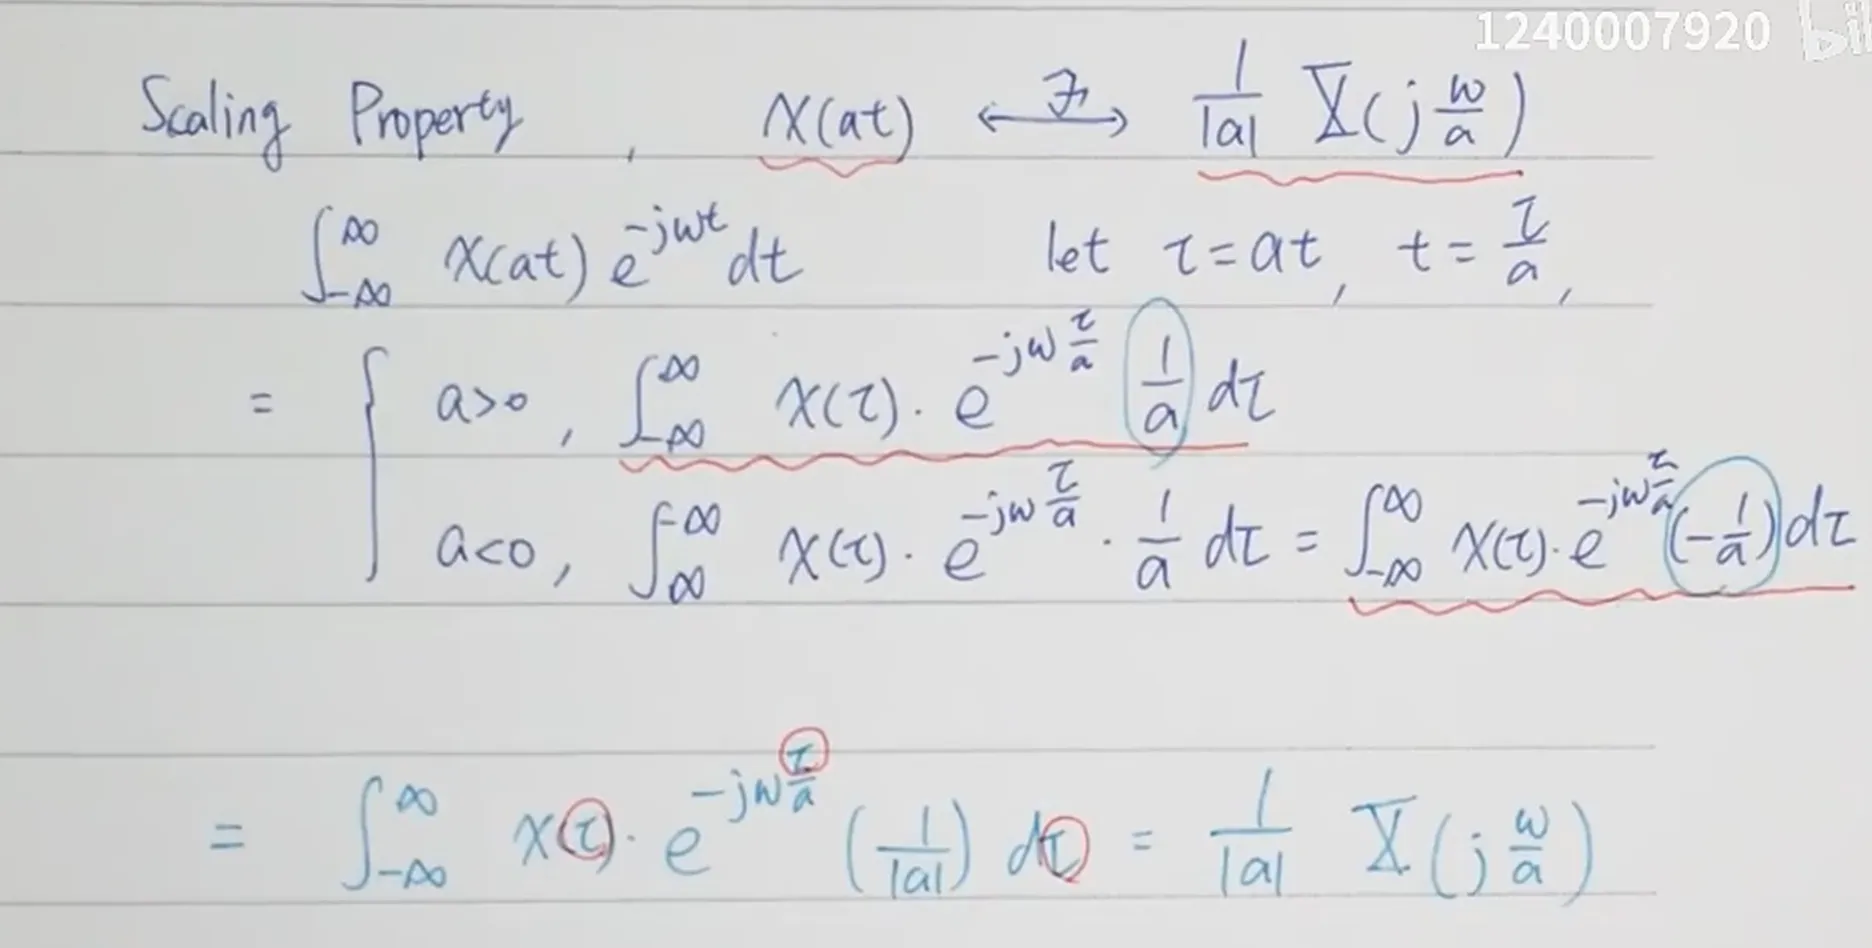 1240007920 bili
Scaling Property , x(at) ⟷ℱ 1/|a| X(j ω/a)
∫_{-∞}^{∞} x(at) e^{-jωt} dt let τ = at, t = τ/a,
= { a>0, ∫_{-∞}^{∞} x(τ) · e^{-jω τ/a} 1/a dτ
a<0, ∫_{∞}^{-∞} x(τ) · e^{-jω τ/a} · 1/a dτ = ∫_{-∞}^{∞} x(τ) · e^{-jω τ/a} (-1/a) dτ
= ∫_{-∞}^{∞} x(τ) · e^{-jω τ/a} (1/|a|) dτ = 1/|a| X(j ω/a)